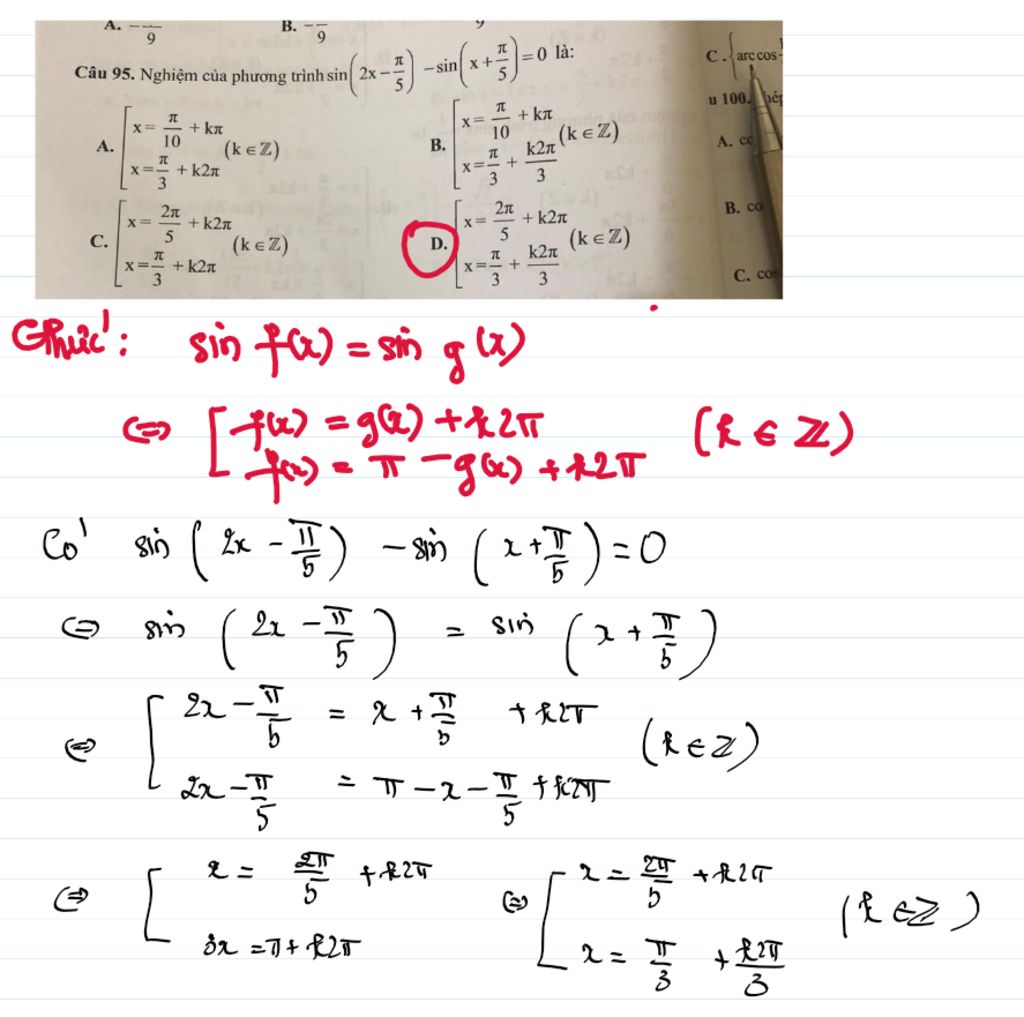 A. -‾/9 B. -‾/9
Câu 95. Nghiệm của phương trình sin(2x - π/5) - sin(x + π/5) = 0 là:
A. [x = π/10 + kπ
x = π/3 + k2π (k ∈ ℤ)
B. [x = π/10 + kπ
x = π/3 + k2π/3 (k ∈ ℤ)
C. [x = 2π/5 + k2π
x = π/3 + k2π (k ∈ ℤ)
D. [x = 2π/5 + k2π
x = π/3 + k2π/3 (k ∈ ℤ)
C. {arccos
u 100.
A. co
B. co
C. cos
sin f(x) = sin g(x)
⇔ [f(x) = g(x) + k2π
f(x) = π - g(x) + k2π (k ∈ ℤ)
Có sin(2x - π/5) - sin(x + π/5) = 0
⇔ sin(2x - π/5) = sin(x + π/5)
⇔ [2x - π/5 = x + π/5 + k2π
2x - π/5 = π - x - π/5 + k2π (k ∈ ℤ)
⇔ [x = 2π/5 + k2π
3x = π + k2π
⇔ [x = 2π/5 + k2π
x = π/3 + k2π/3 (k ∈ ℤ)